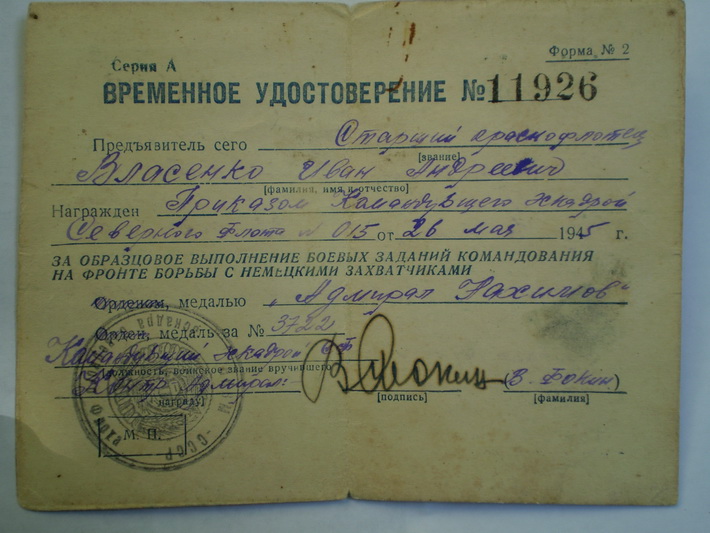 Серия А
Форма № 2
ВРЕМЕННОЕ УДОСТОВЕРЕНИЕ №11926
Предъявитель сего Старший краснофлотец
[звание]
Власенко Иван Андреевич
[фамилия, имя и отчество]
Награжден Приказом Командующего Эскадрой
Северного Флота N 015 от 26 мая 1945 г.
ЗА ОБРАЗЦОВОЕ ВЫПОЛНЕНИЕ БОЕВЫХ ЗАДАНИЙ КОМАНДОВАНИЯ
НА ФРОНТЕ БОРЬБЫ С НЕМЕЦКИМИ ЗАХВАТЧИКАМИ
Орденом, медалью „Адмирал Нахимов"
Орден, медаль за № 3722
Командующий Эскадрой СФ
[должность, воинское звание вручившего
Контр Адмирал: (В. Фокин)
награду] [подпись] [фамилия]
М. П.
Эскадра
Флота
СССР